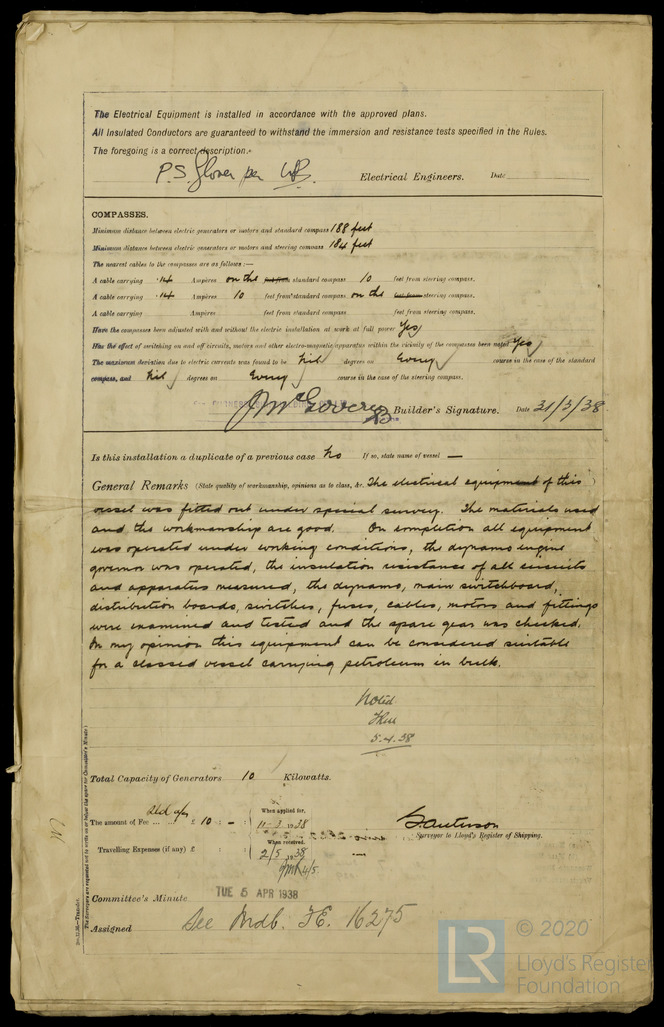 The Electrical Equipment is installed in accordance with the approved plans.
All Insulated Conductors are guaranteed to withstand the immersion and resistance tests specified in the Rules.
The foregoing is a correct description.
P.S. Glover per
Electrical Engineers. Date
COMPASSES.
Minimum distance between electric generators or motors and standard compass 188 feet
Minimum distance between electric generators or motors and steering compass 184 feet
The nearest cables to the compasses are as follows:—
A cable carrying .14 Ampères on the standard compass 10 feet from steering compass.
A cable carrying .14 Ampères 10 feet from standard compass on the steering compass.
A cable carrying Ampères feet from standard compass feet from steering compass.
Have the compasses been adjusted with and without the electric installation at work at full power Yes
Has the effect of switching on and off circuits, motors and other electro-magnetic apparatus within the vicinity of the compasses been noted Yes
The maximum deviation due to electric currents was found to be Nil degrees on Every course in the case of the standard
compass, and Nil degrees on Every course in the case of the steering compass.
Builder's Signature. Date 31/3/38
Is this installation a duplicate of a previous case No If so, state name of vessel —
General Remarks (State quality of workmanship, opinions as to class, &c. The electrical equipment of this)
vessel was fitted out under special survey. The materials used
and the workmanship are good. On completion all equipment
was operated under working conditions, the dynamo engine
governor was operated, the insulation resistance of all circuits
and apparatus measured, the dynamo, main switchboard,
distribution boards, switches, fuses, cables, motors and fittings
were examined and tested and the spare gear was checked.
In my opinion this equipment can be considered suitable
for a classed vessel carrying petroleum in bulk.
Noted
5.4.38
Total Capacity of Generators 10 Kilowatts.
The amount of Fee ... ... £ 10 : – :
When applied for,
11-3-1938
When received,
Travelling Expenses (if any) £ : :
2/5 1938
4/5
Surveyor to Lloyd's Register of Shipping.
Committee's Minute
TUE 5 APR 1938
Assigned See Mdb. F.E. 16275
2m.11.36—Transfer.
(The Surveyors are requested not to write on or below the space for Committee's Minute.)
LR
© 2020
Lloyd's Register
Foundation